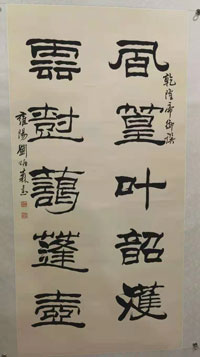 乾隆帝御譔
風篁叶韶濩
雲尌藹蓬壺
雍陽劉炳森書